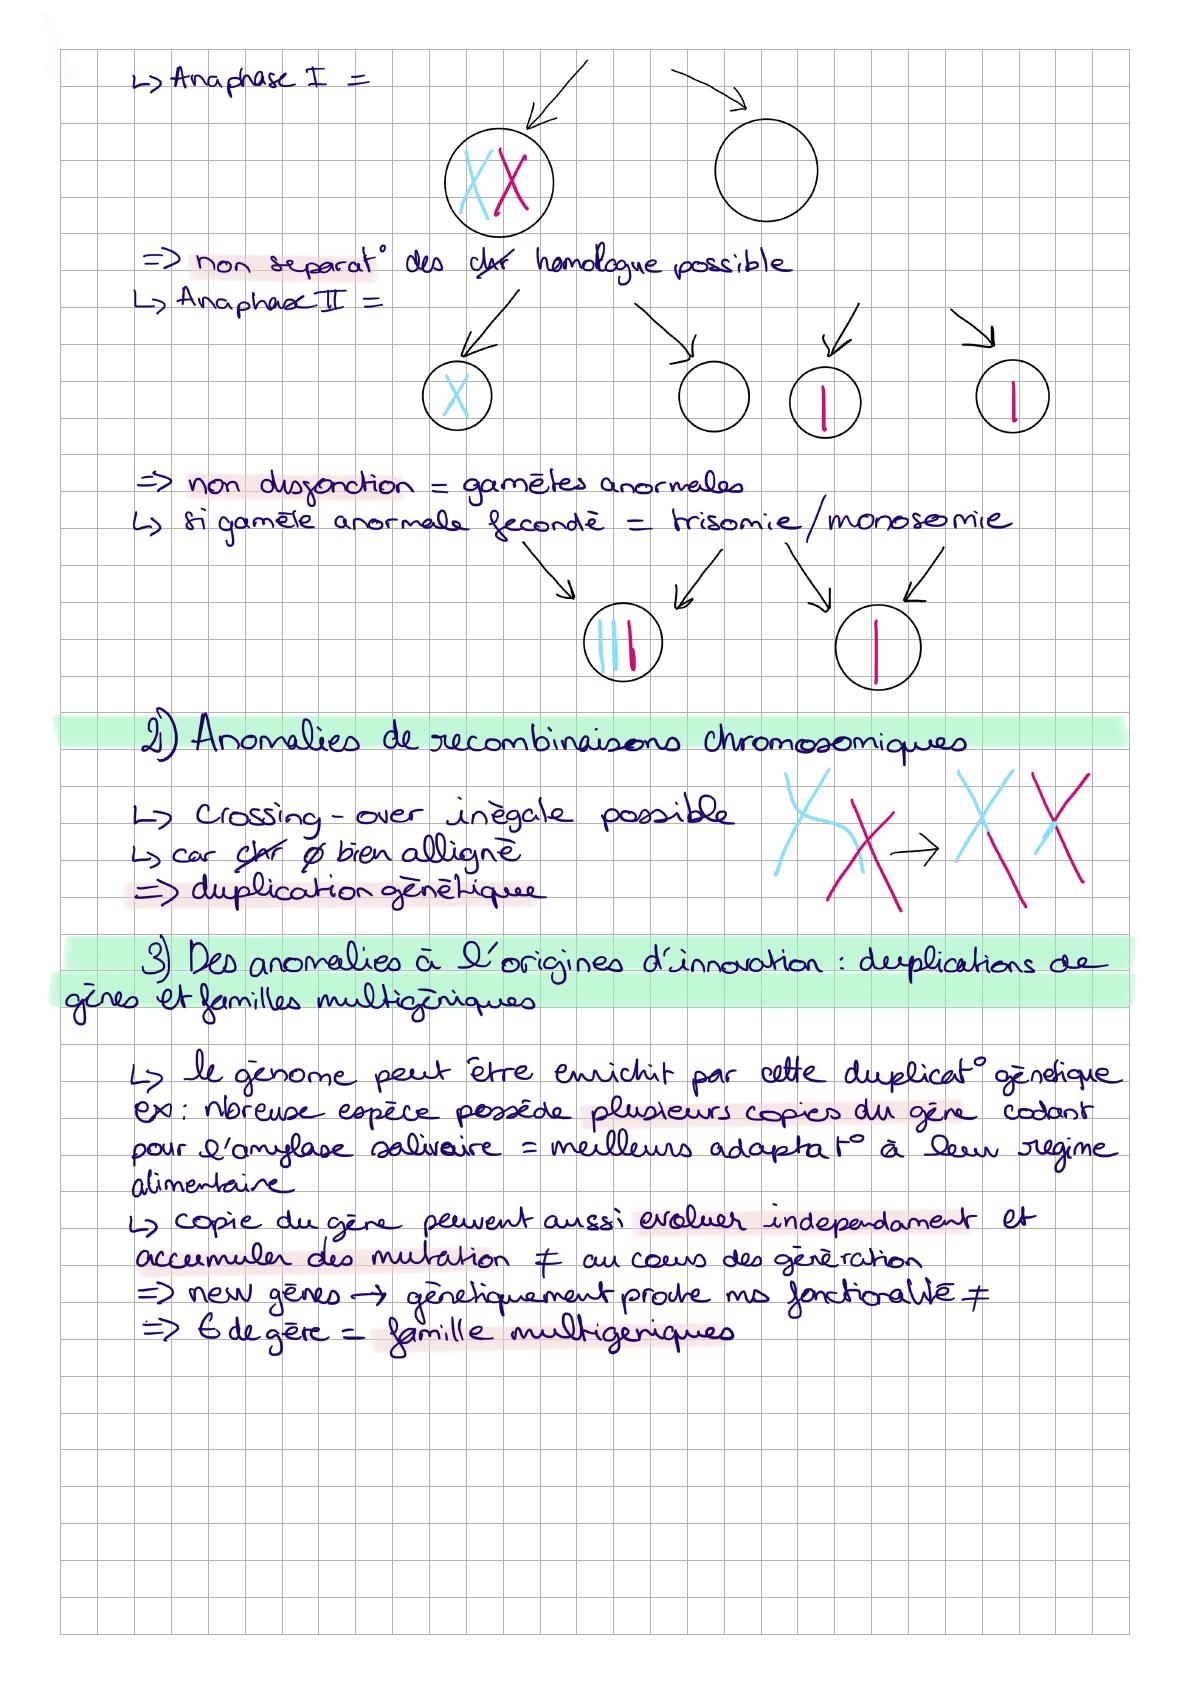 ↳ Anaphase I =
=> non separat° des chr homologue possible
↳ Anaphase II =
=> non disjonction = gamètes anormales
↳ si gamète anormale fecondé = trisomie/monosomie
2) Anomalies de recombinaisons chromosomiques
↳ Crossing-over inégale possible
↳ car chr ∅ bien alligné
=> duplication génétique
3) Des anomalies à l'origines d'innovation : duplications de
gènes et familles multigéniques
↳ le génome peut être enrichit par cette duplicat° génétique
ex : nbreuse espèce possède plusieurs copies du gène codant
pour l'amylase salivaire = meilleurs adaptat° à leur regime
alimentaire
↳ copie du gène peuvent aussi evoluer independament et
accumuler des mutation ≠ au cours des génération
=> new gènes → génétiquement proche ms fonctionalité ≠
=> E de gère = famille multigeniques